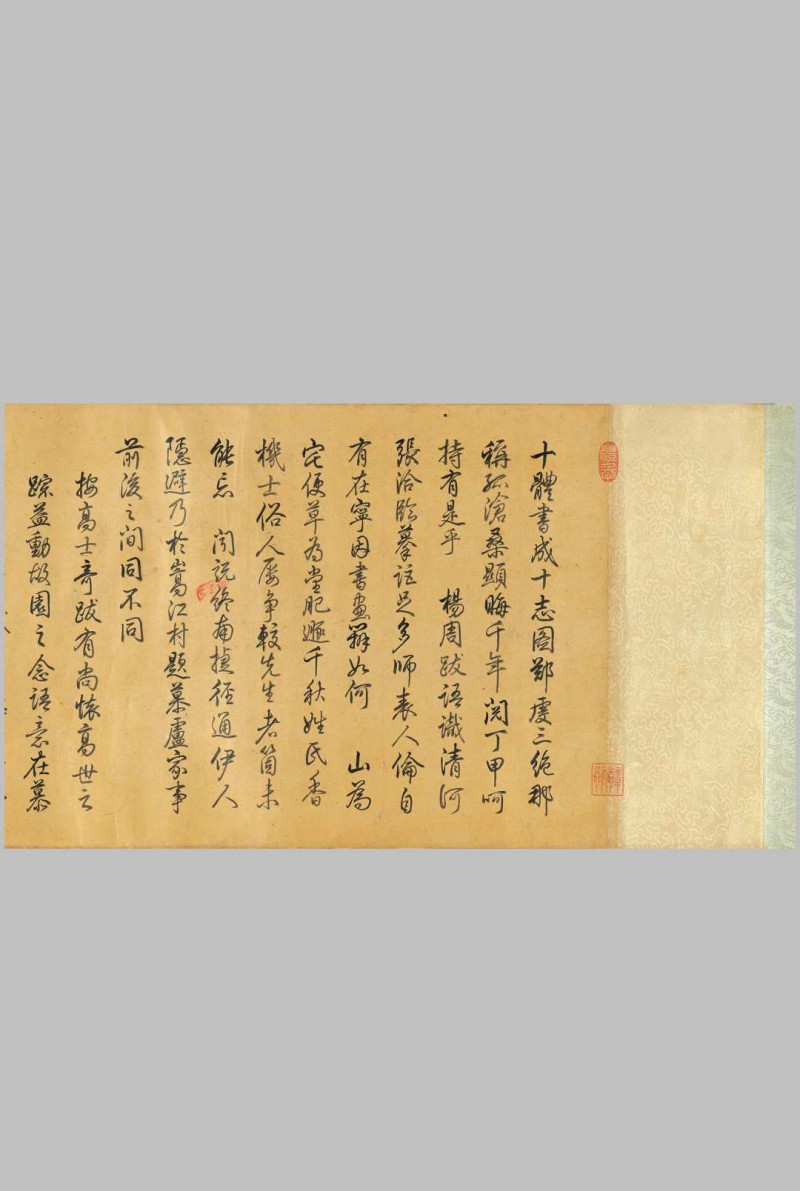 十體書成十志圖鄭虔三絶那
稱孤滄桑顯晦千年閱丁甲呵
持有是乎　楊周跋語識清河
張洽臨摹詎足多師表人倫自
有在寧因書畫辯如何　山為
宅便草為堂肥遯千秋姓氏香
機士俗人屡爭較先生者箇未
能忘　閒說終南捷徑通伊人
隱避乃於嵩江村題慕盧家事
前後之間同不同
按高士奇跋有尚懷高世之
踪益動故園之念語意在慕